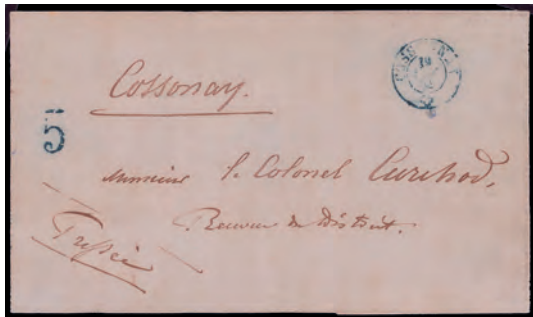 Cossonay.
5
Monsieur le Colonel Curchod,
Receveur du District.
Pressée